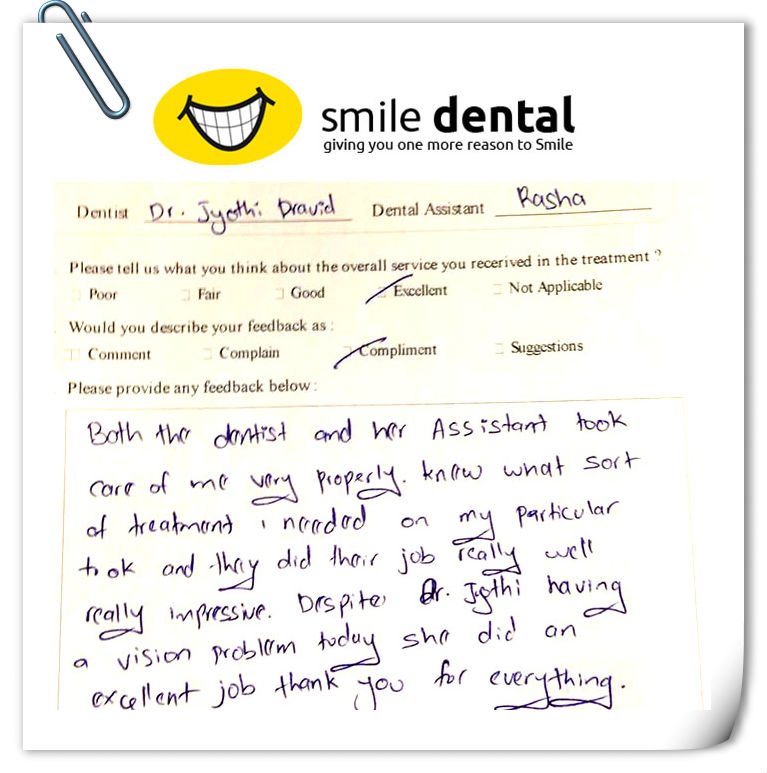 smile dental
giving you one more reason to Smile
Dentist Dr. Jyothi Dravid Dental Assistant Rasha
Please tell us what you think about the overall service you recerived in the treatment ?
Poor Fair Good Excellent Not Applicable
Would you describe your feedback as :
Comment Complain Compliment Suggestions
Please provide any feedback below :
Both the dentist and her Assistant took
care of me very properly. knew what sort
of treatment i needed on my particular
took and they did their job really well
really impressive. Despite Dr. Jyothi having
a vision problem today she did an
excellent job thank you for everything.